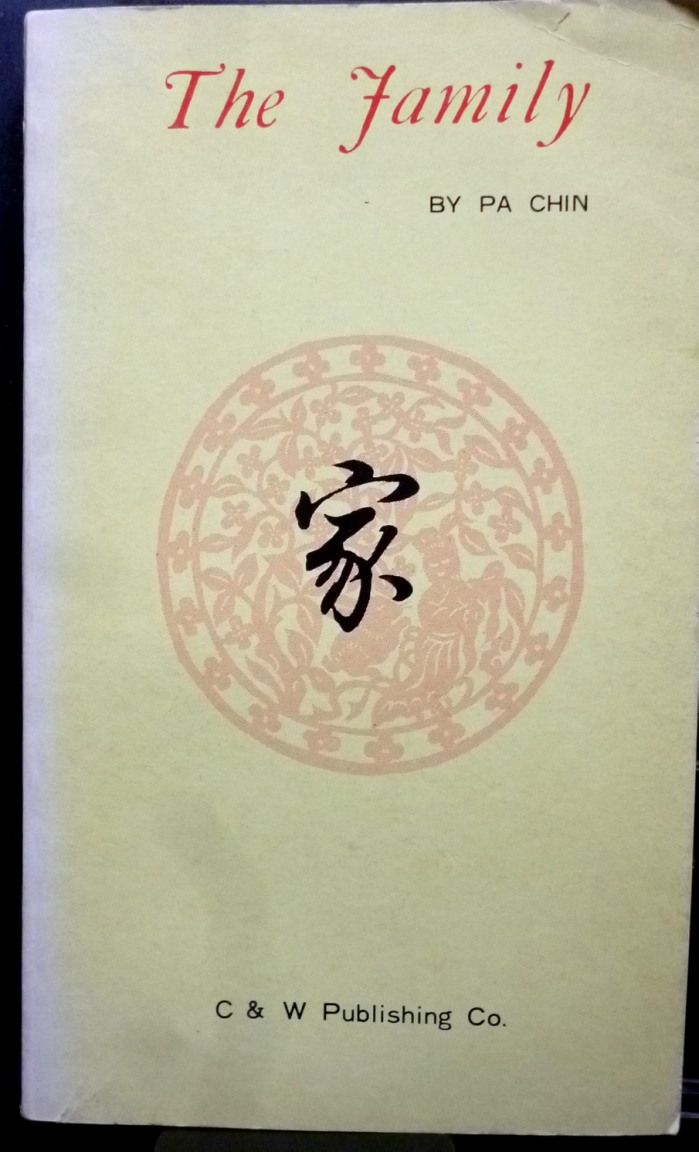 The Family
BY PA CHIN
家
C & W Publishing Co.